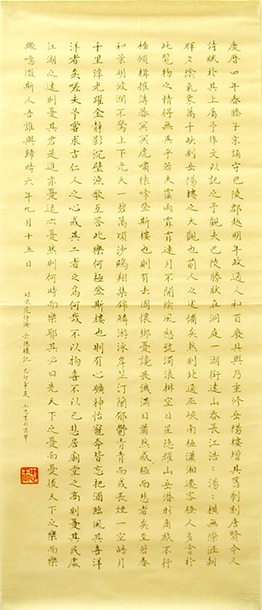 慶曆四年春滕子京謫守巴陵郡越明年政通人和百廢具興乃重修岳陽樓增其舊制刻唐賢今人
詩賦於其上屬予作文以記之予觀夫巴陵勝狀在洞庭一湖銜遠山吞長江浩〻湯〻橫無際涯朝
暉夕陰氣象萬千此則岳陽樓之大觀也前人之述備矣然則北通巫峽南極瀟湘遷客騷人多會於
此覽物之情得無異乎若夫霪雨霏霏連月不開陰風怒號濁浪排空日星隱耀山岳潛形商旅不行
檣傾楫摧薄暮冥冥虎嘯猿啼登斯樓也則有去國懷鄉憂讒畏譏滿目蕭然感極而悲者矣至若春
和景明波瀾不驚上下天光一碧萬頃沙鷗翔集錦鱗游泳岸芷汀蘭郁郁青青而或長煙一空皓月
千里浮光躍金靜影沉璧漁歌互答此樂何極登斯樓也則有心曠神怡寵辱皆忘把酒臨風其喜洋
洋者矣嗟夫予嘗求古仁人之心或異二者之為何哉不以物喜不以己悲居廟堂之高則憂其民處
江湖之遠則憂其君是進亦憂退亦憂然則何時而樂耶其必曰先天下之憂而憂後天下之樂而樂
歟噫微斯人吾誰與歸時六年九月十五日
范仲淹岳陽樓記